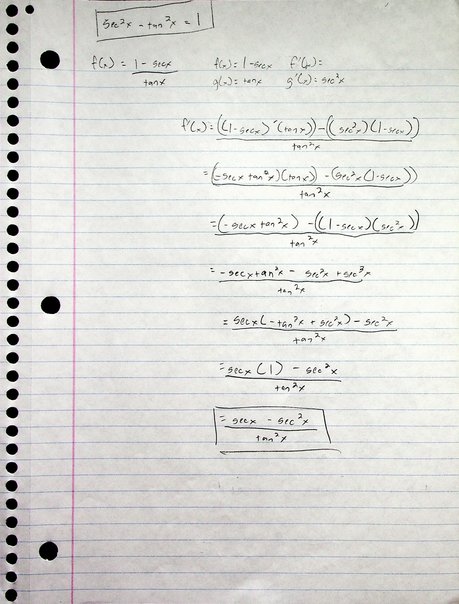 sec²x - tan²x = 1
f(x) = (1 - secx)/tanx    f(x) = 1 - secx    f'(x) =
g(x) = tanx    g'(x) = sec²x
f'(x) = (((1 - secx)'(tanx)) - ((sec²x)(1 - secx)))/tan²x
= ((-secx tan²x)(tanx) - (sec²x(1 - secx)))/tan²x
= ((-secx tan²x) - ((1 - secx)(sec²x)))/tan²x
= (-secx tan²x - sec²x + sec³x)/tan²x
= (secx(-tan²x + sec²x) - sec²x)/tan²x
= (secx(1) - sec²x)/tan²x
= (secx - sec²x)/tan²x